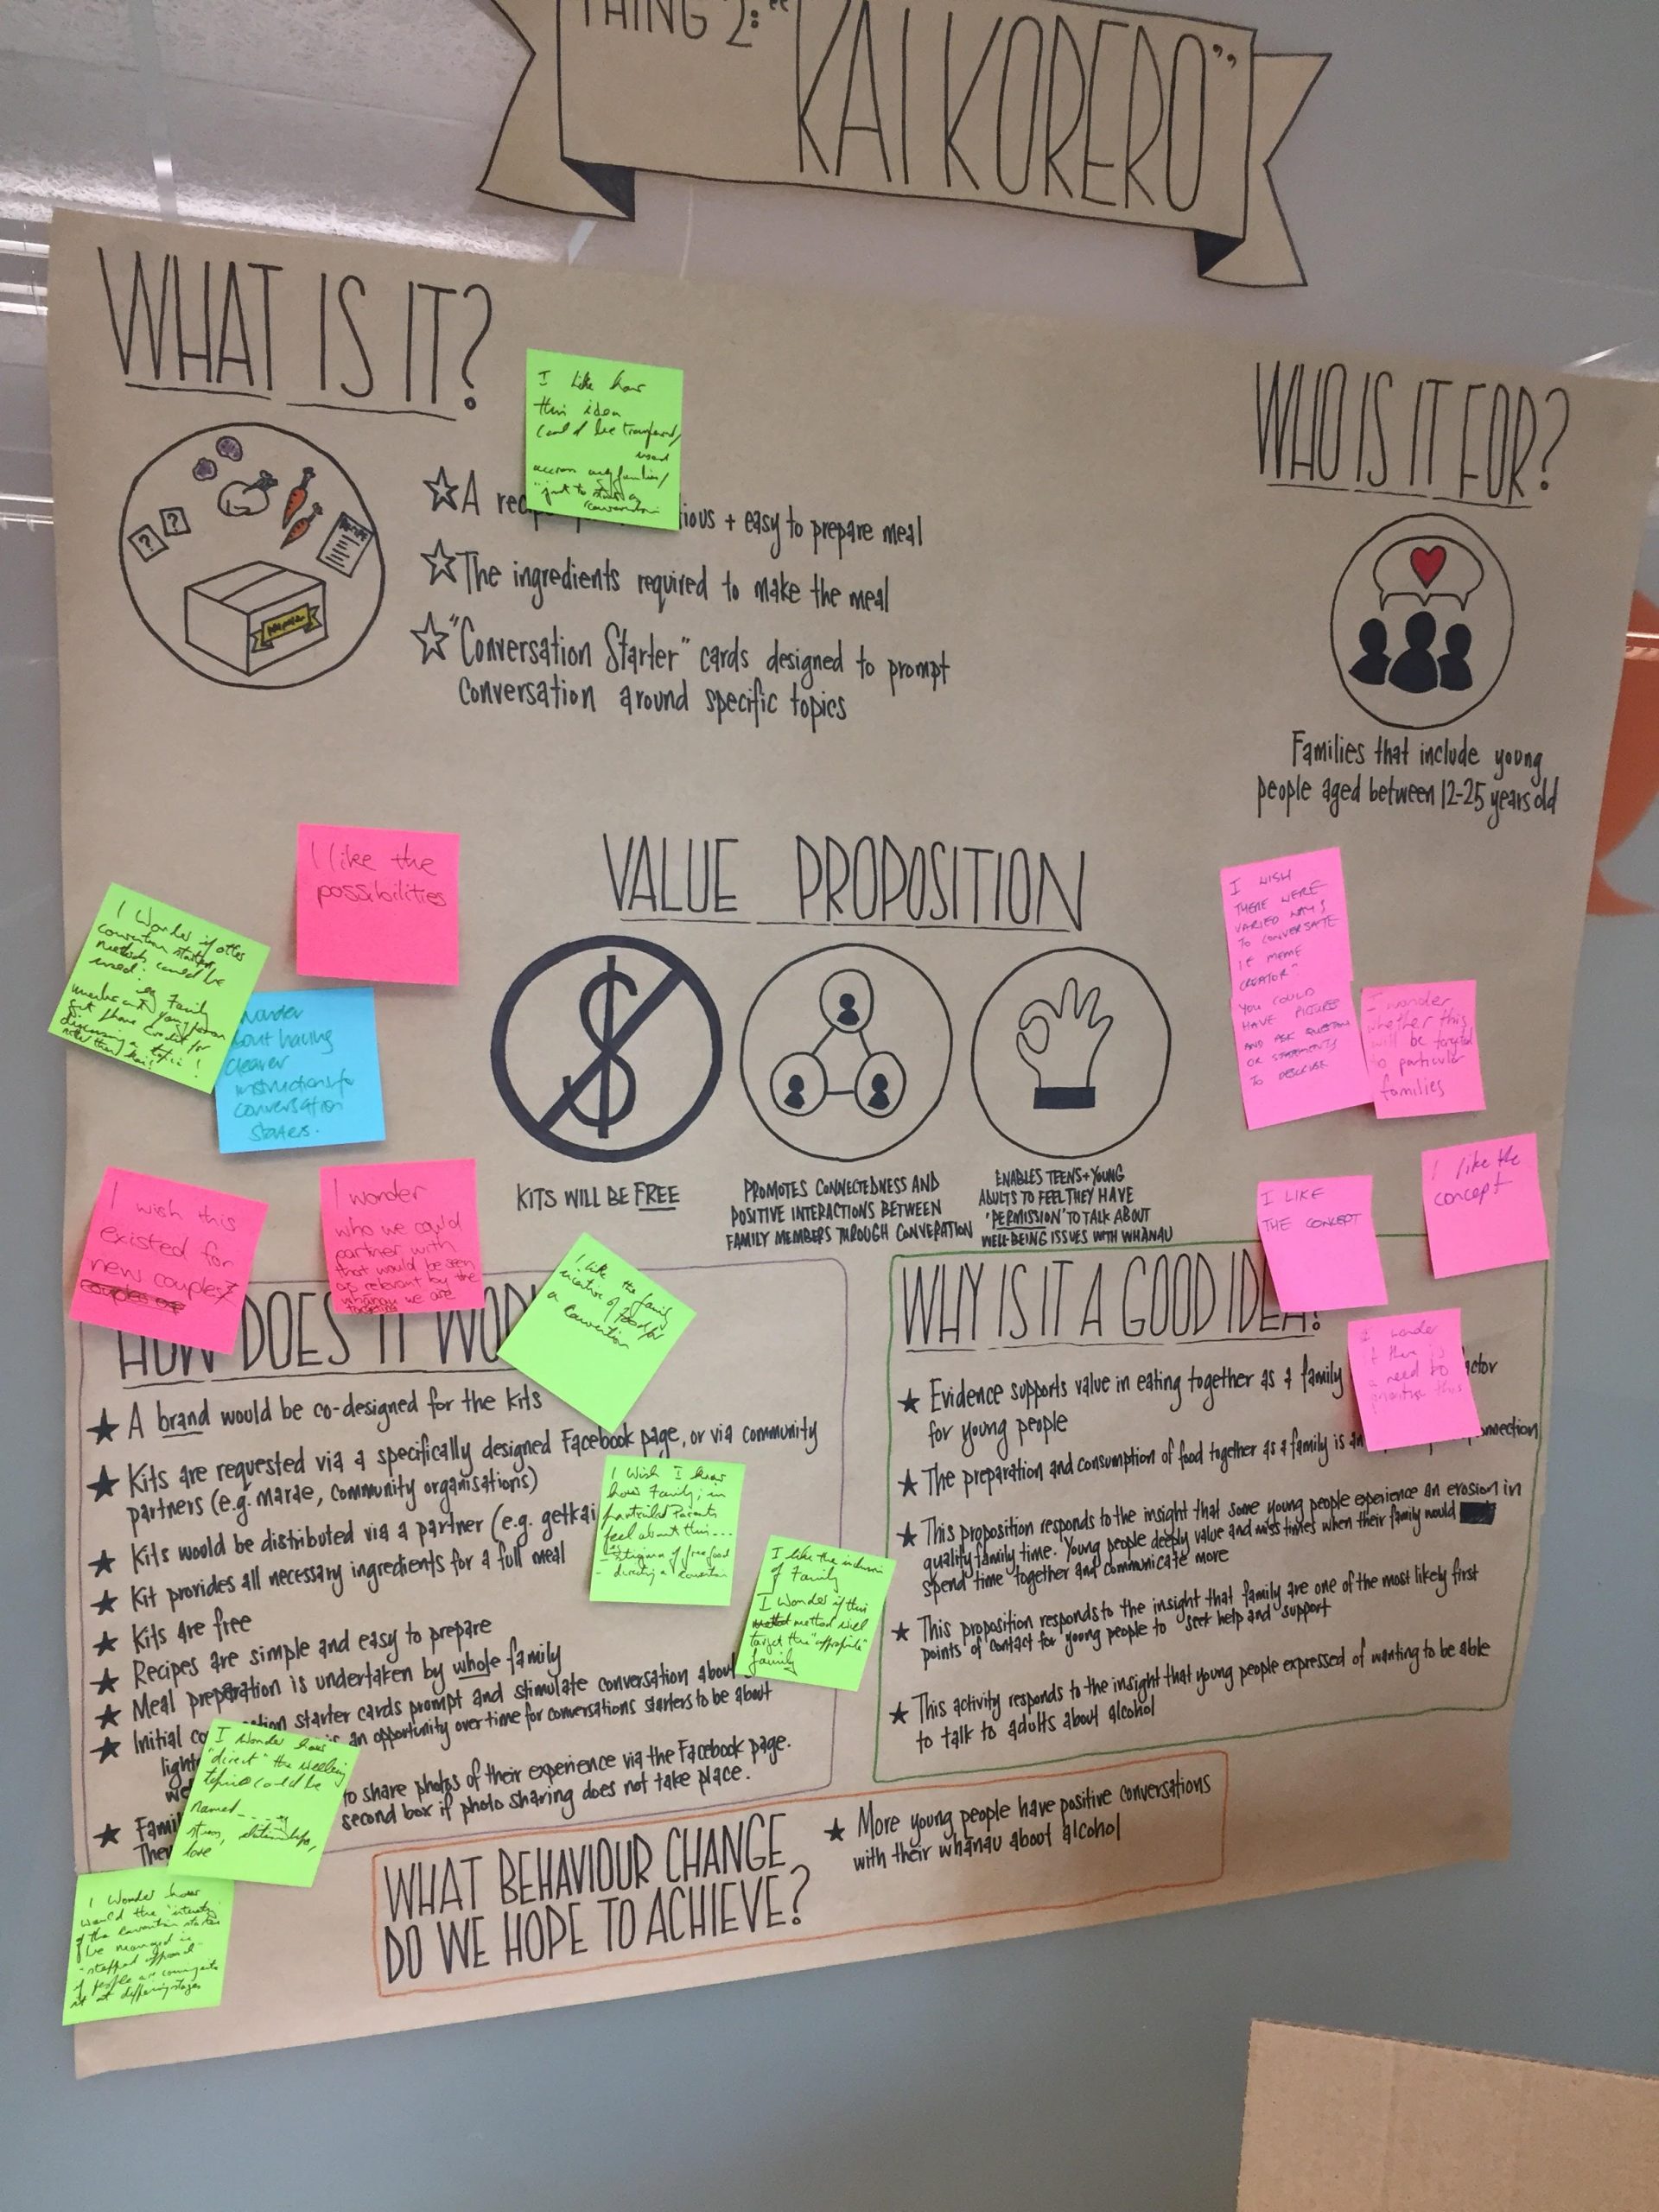 THING 2: "KAI KORERO"
WHAT IS IT?
I like how
this idea
could be
used
across
just to start a
☆ A
+ easy to prepare meal
☆ The ingredients required to make the meal
☆ "Conversation Starter" cards designed to prompt
conversation around specific topics
WHO IS IT FOR?
Families that include young
people aged between 12-25 years old
I like the
possibilities
I Wonder if other
could be
used.
eg Family
discussing a topic!
about having
clearer
instructions for
conversation
I wish this
existed for
new couples
I wonder
who we could
partner with
that would be seen
as relevant by the
whanau we are
VALUE PROPOSITION
KITS WILL BE FREE
PROMOTES CONNECTEDNESS AND
POSITIVE INTERACTIONS BETWEEN
FAMILY MEMBERS THROUGH CONVERATION
ENABLES TEENS + YOUNG
ADULTS TO FEEL THEY HAVE
'PERMISSION' TO TALK ABOUT
WELL-BEING ISSUES WITH WHANAU
I WISH
THERE WERE
VARIED WAYS
TO CONVERSATE
IE MEME
CREATOR"
YOU COULD
HAVE PICTURES
AND ASK
OR STATEMENTS
TO DESCRIBE
I wonder
whether this
will be targeted
to particular
families
I LIKE
THE CONCEPT
I like the
concept
HOW DOES IT
I like the family
of food for
a
★ A brand would be co-designed for the kits
★ Kits are requested via a specifically designed Facebook page, or via community
partners (e.g. marae, community organisations)
★ Kits would be distributed via a partner (e.g. getkai
★ Kit provides all necessary ingredients for a full meal
★ Kits are free
★ Recipes are simple and easy to prepare
★ Meal preparation is undertaken by whole family
★ Initial starter cards prompt and stimulate conversation about
an opportunity over time for conversations starters to be about
★ to share photos of their experience via the Facebook page.
second box if photo sharing does not take place.
I Wish I knew
how Family, in
particular Parents
feel about this...
- stigma of free food
I like the inclusion
of Family
I Wonder if this
method will
target the "appropriate"
family
I Wonder how
"direct" the wellbeing
topics could be
named
eg
stress, relationships,
love
I Wonder how
would the "intensity"
of the
be managed ie
stepped approach
if people are
at differing stages
WHY IS IT A GOOD IDEA?
I wonder
if there is
a need to
this
★ Evidence supports value in eating together as a family
for young people
★ The preparation and consumption of food together as a family is an
★ This proposition responds to the insight that some young people experience an erosion in
quality family time. Young people deeply value and miss times when their family would
spend time together and communicate more
★ This proposition responds to the insight that family are one of the most likely first
points of contact for young people to seek help and support
★ This activity responds to the insight that young people expressed of wanting to be able
to talk to adults about alcohol
WHAT BEHAVIOUR CHANGE
DO WE HOPE TO ACHIEVE?
★ More young people have positive conversations
with their whanau about alcohol